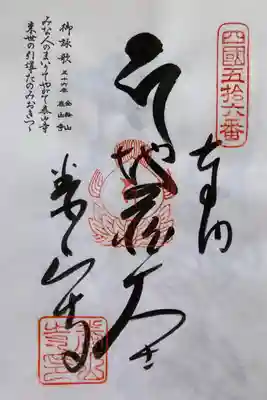 四國五拾六番
奉納
地蔵大士
泰山寺
御詠歌 五十六番 金輪山 泰山寺
みな人のまいりてやがて泰山寺
来世の引導たのみおきつゝ